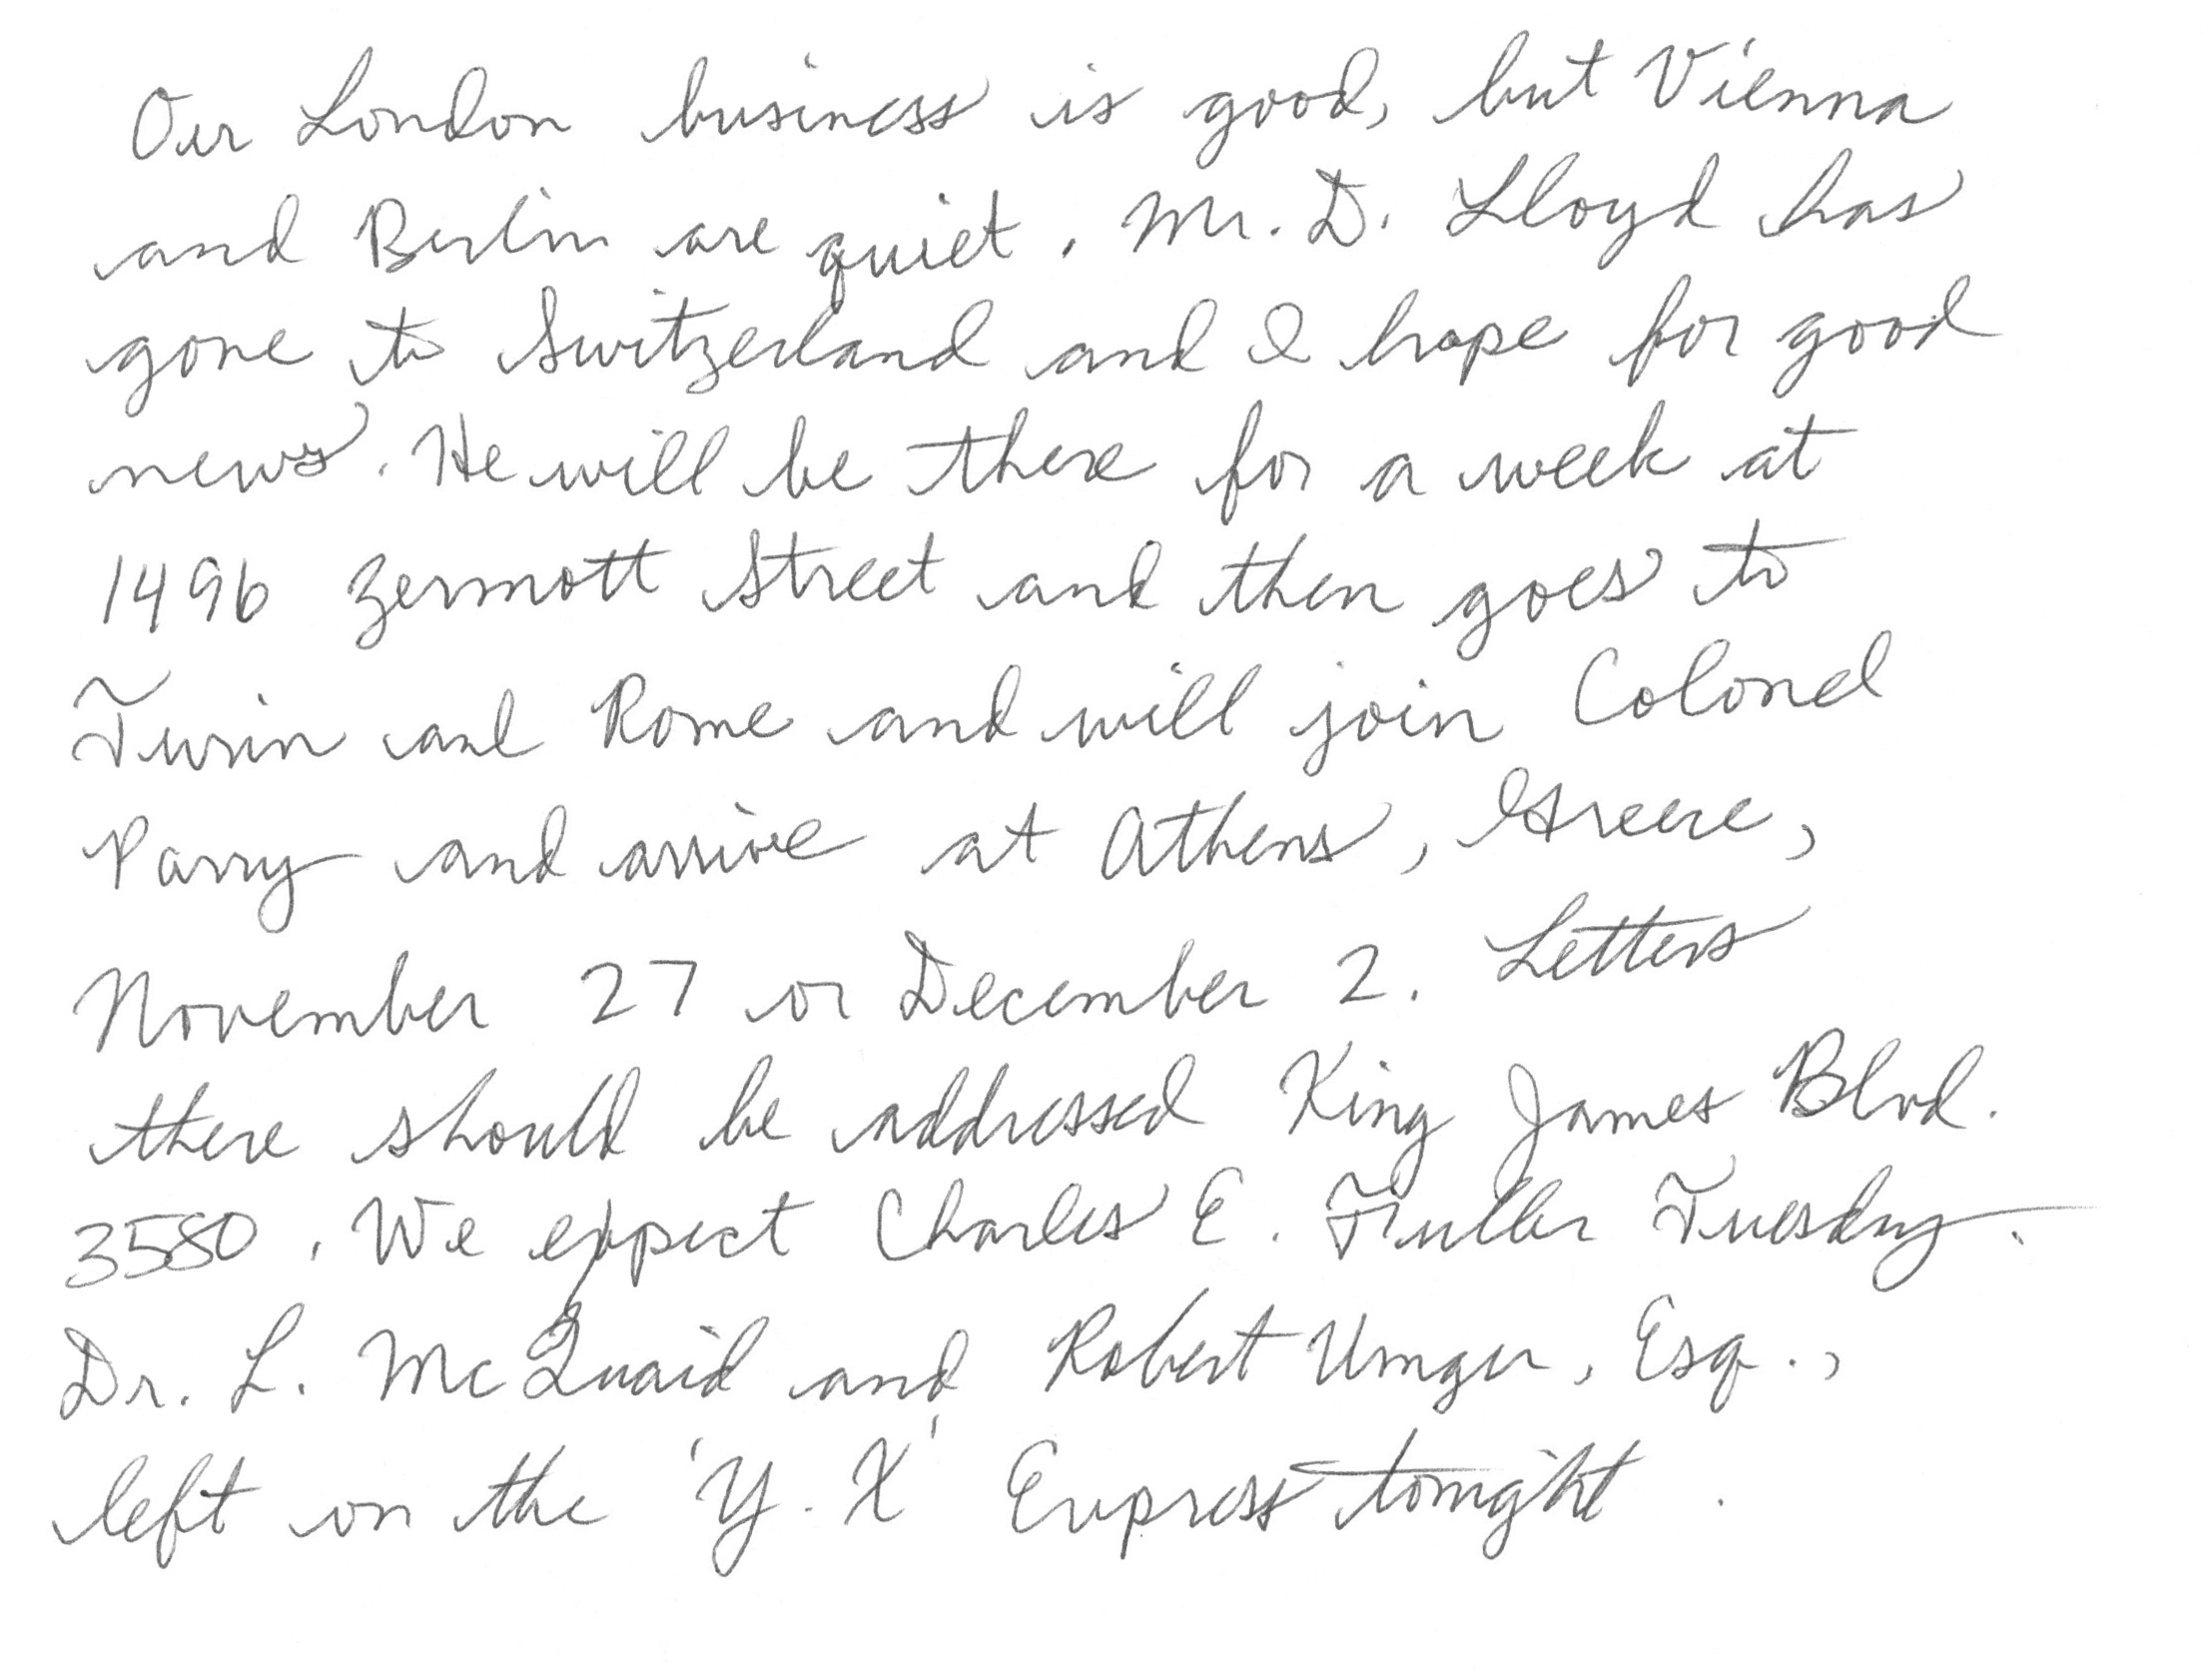 Our London business is good, but Vienna
and Berlin are quiet. Mr. D. Lloyd has
gone to Switzerland and I hope for good
news. He will be there for a week at
1496 Zermott Street and then goes to
Turin and Rome and will join Colonel
Parry and arrive at Athens, Greece,
November 27 or December 2. Letters
there should be addressed King James Blvd.
3580. We expect Charles E. Fuller Tuesday.
Dr. L. McQuaid and Robert Unger, Esq.,
left on the 'Y. X' Express tonight.